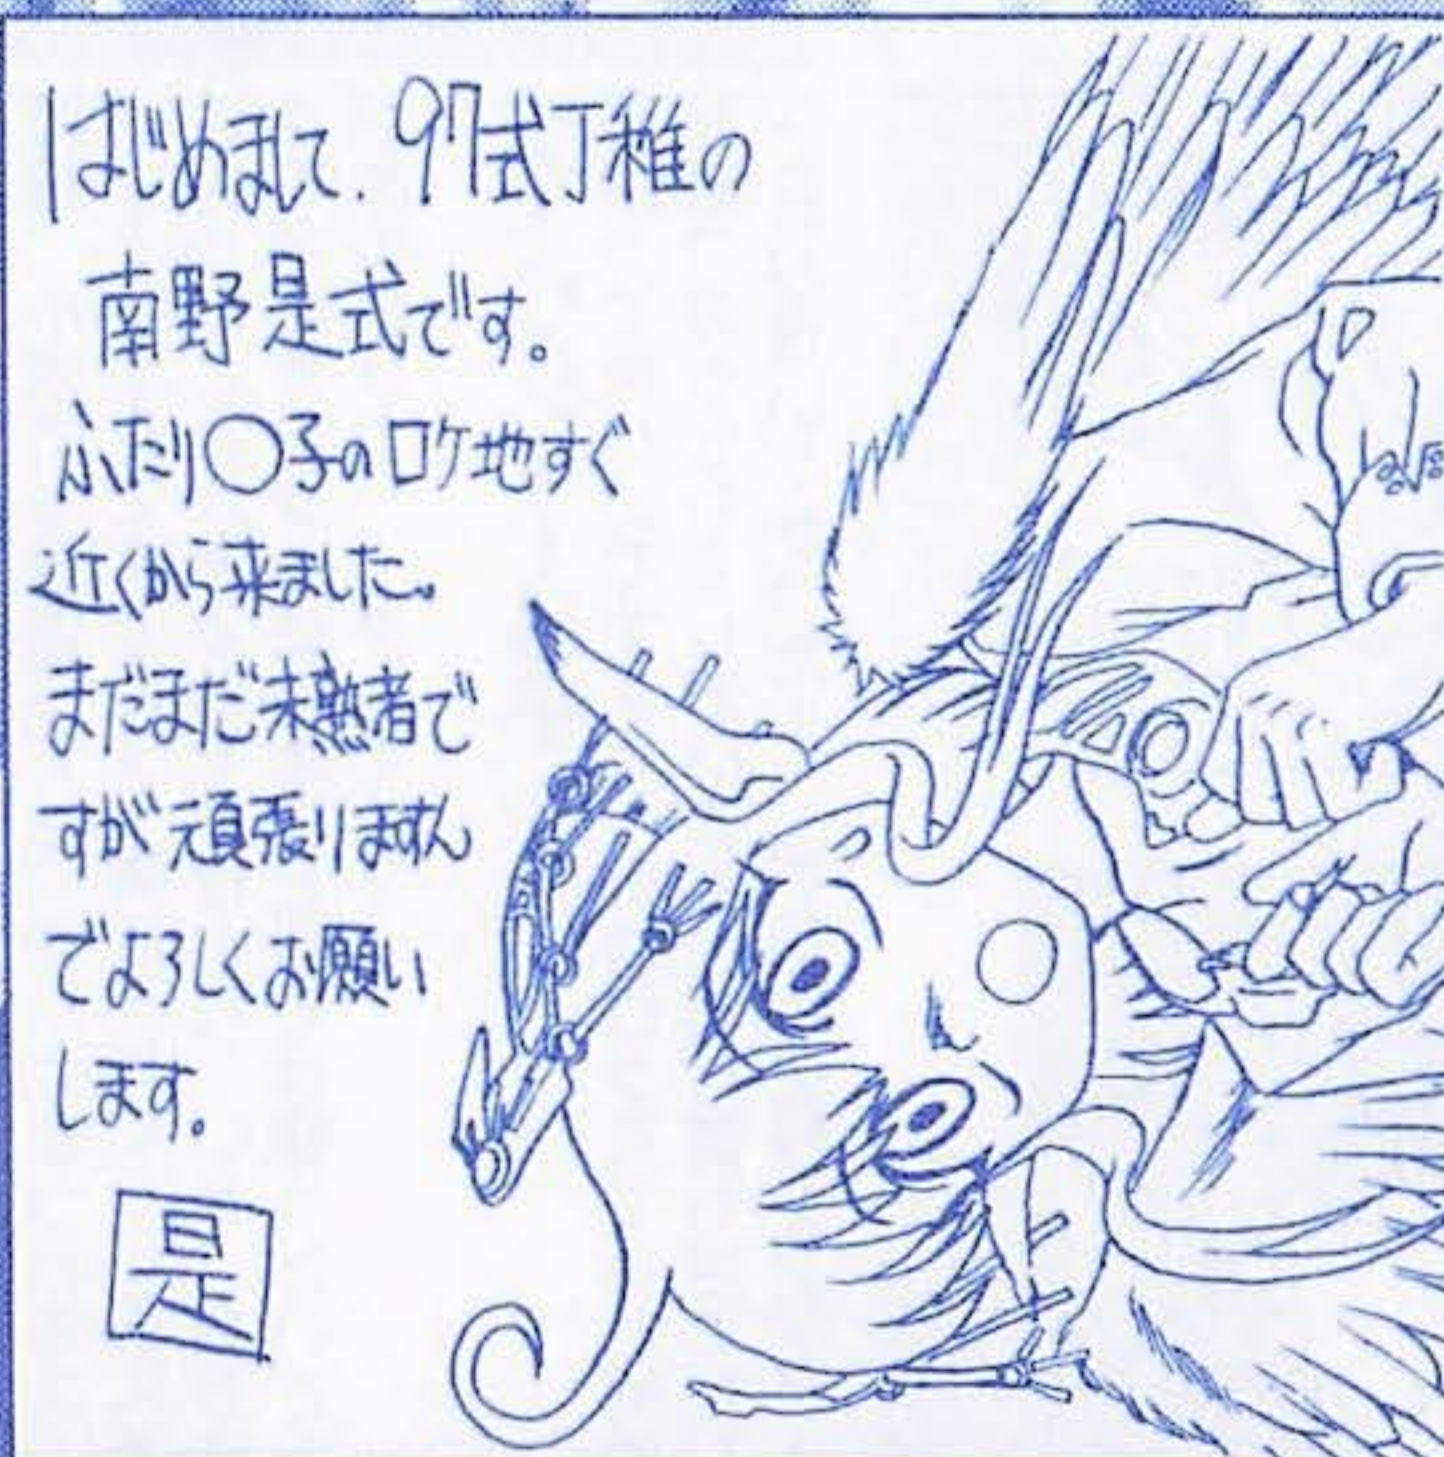 はじめまして、97式丁稚の
南野是式です。
ふたり〇子のロケ地すぐ
近くから来ました。
まだまだ未熟者で
すが頑張りますん
でよろしくお願い
します。
是